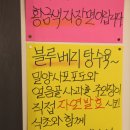 황금색 자장면입니다
블루베리 탕수육~
밀양사포포도와
얼음골 사과를 주원료로
직접 자연발효 시킨
식초와 함께